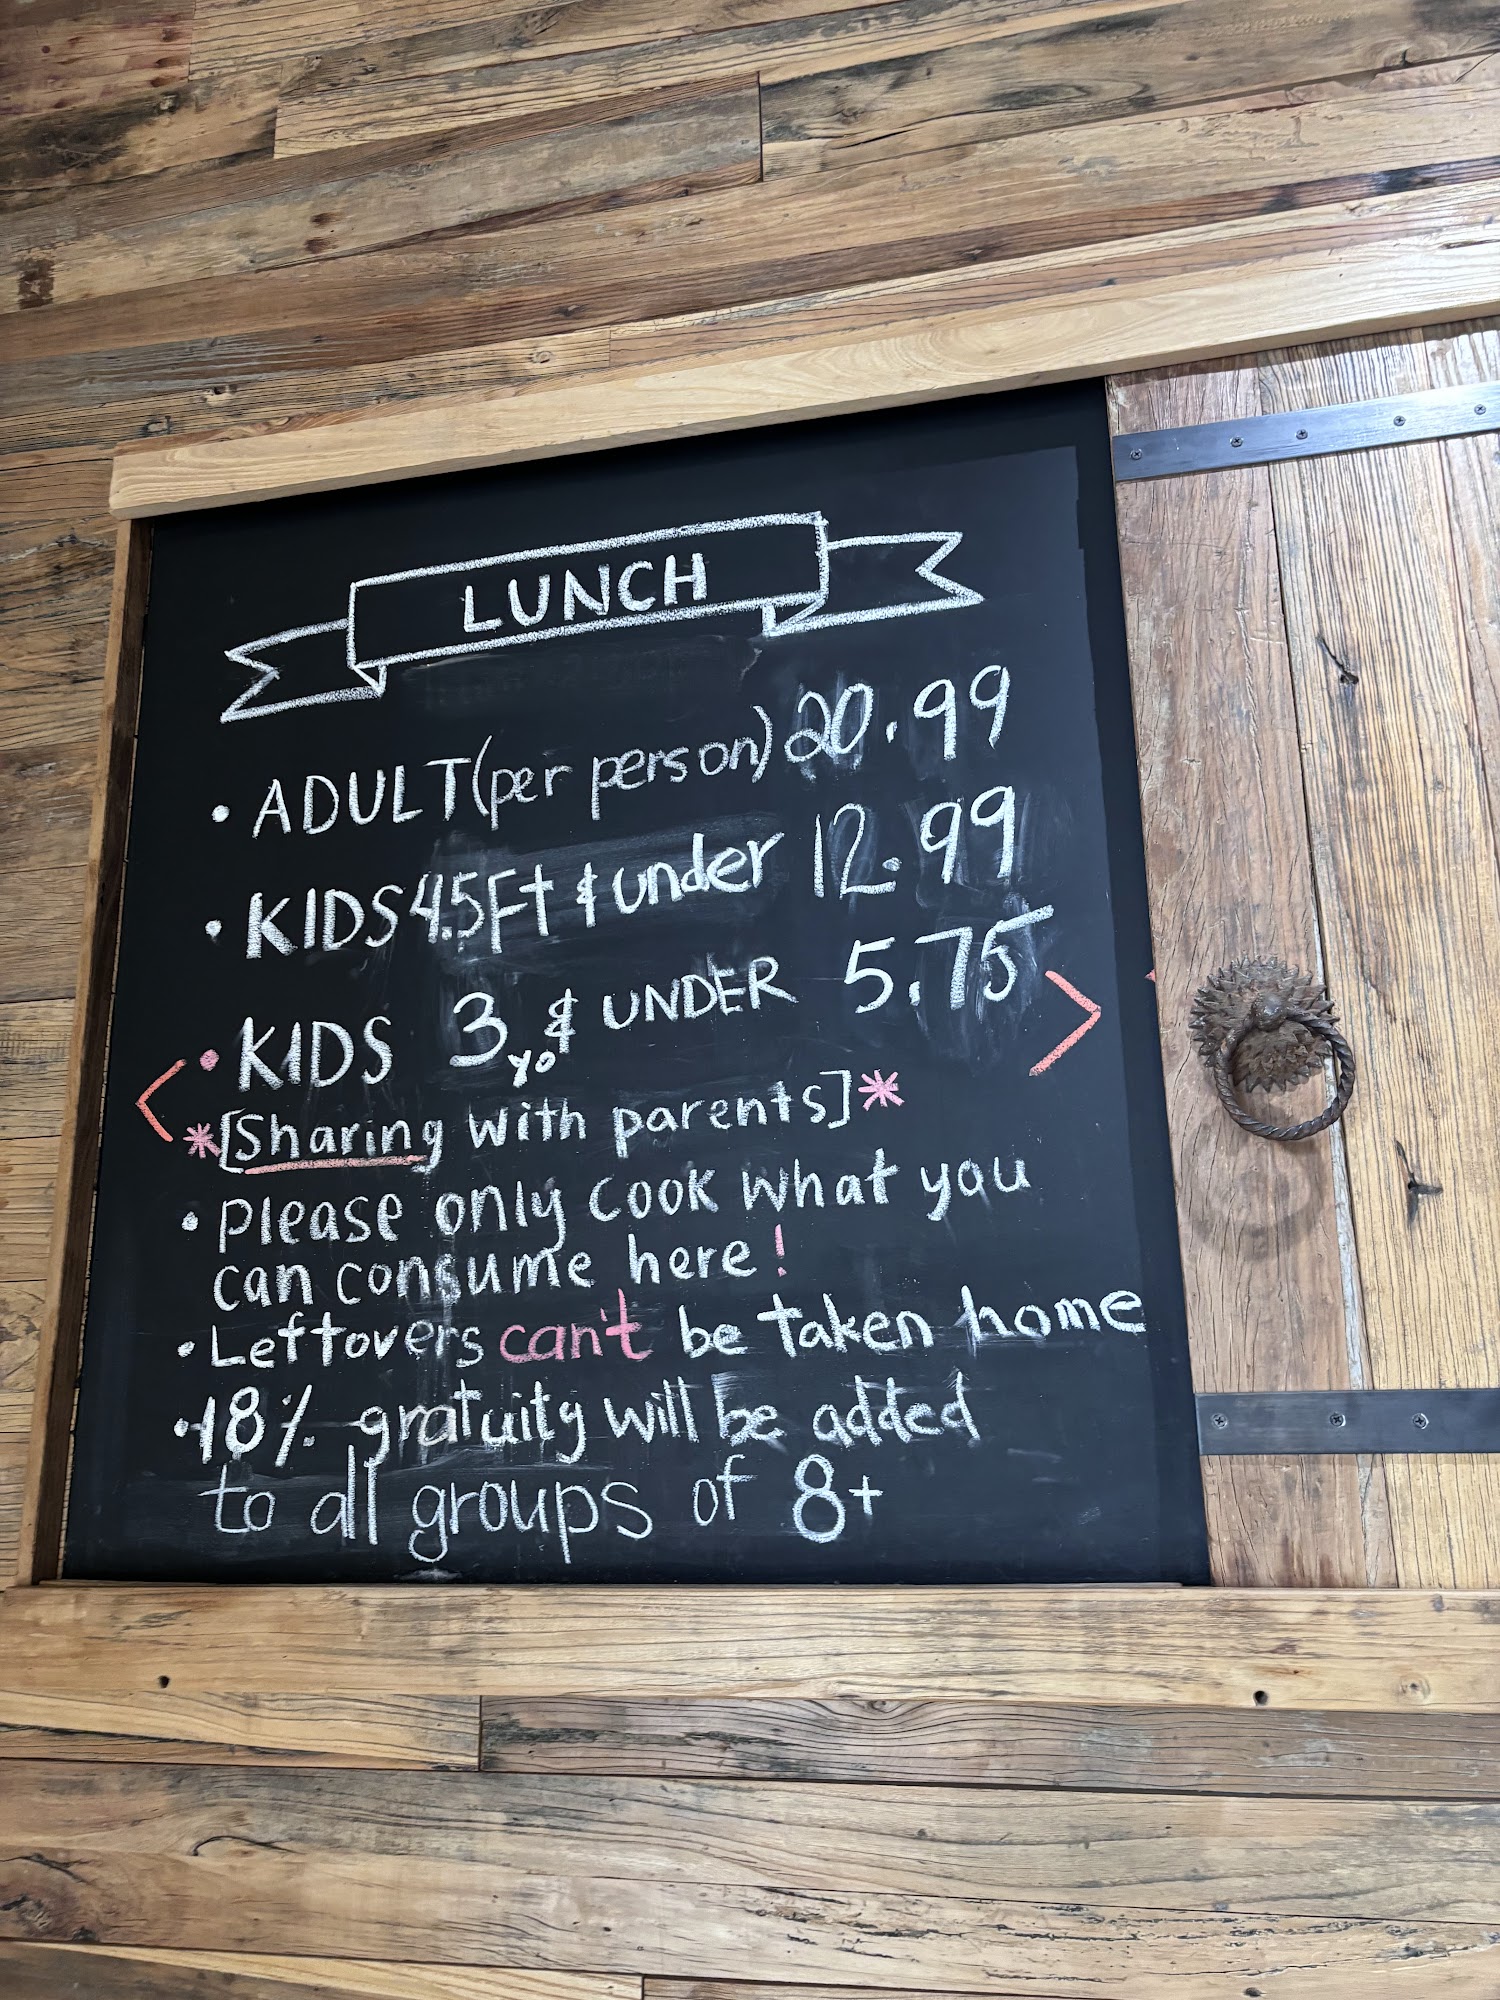 LUNCH
• ADULT (per person) 20.99
• KIDS 4.5Ft & under 12.99
• KIDS 3yo & UNDER 5.75
*[Sharing with parents]*
• please only cook what you
can consume here!
• Leftovers can't be taken home
• 18% gratuity will be added
to all groups of 8+